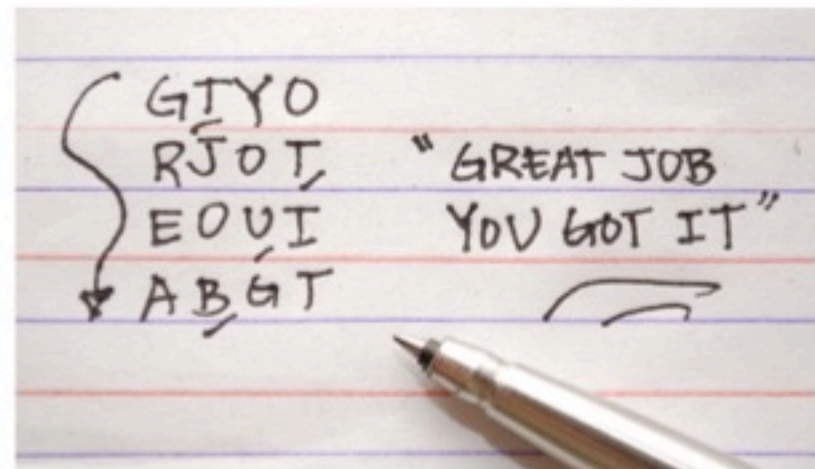 GTYO
RJOT
EOUI
ABGT
"GREAT JOB
YOU GOT IT"